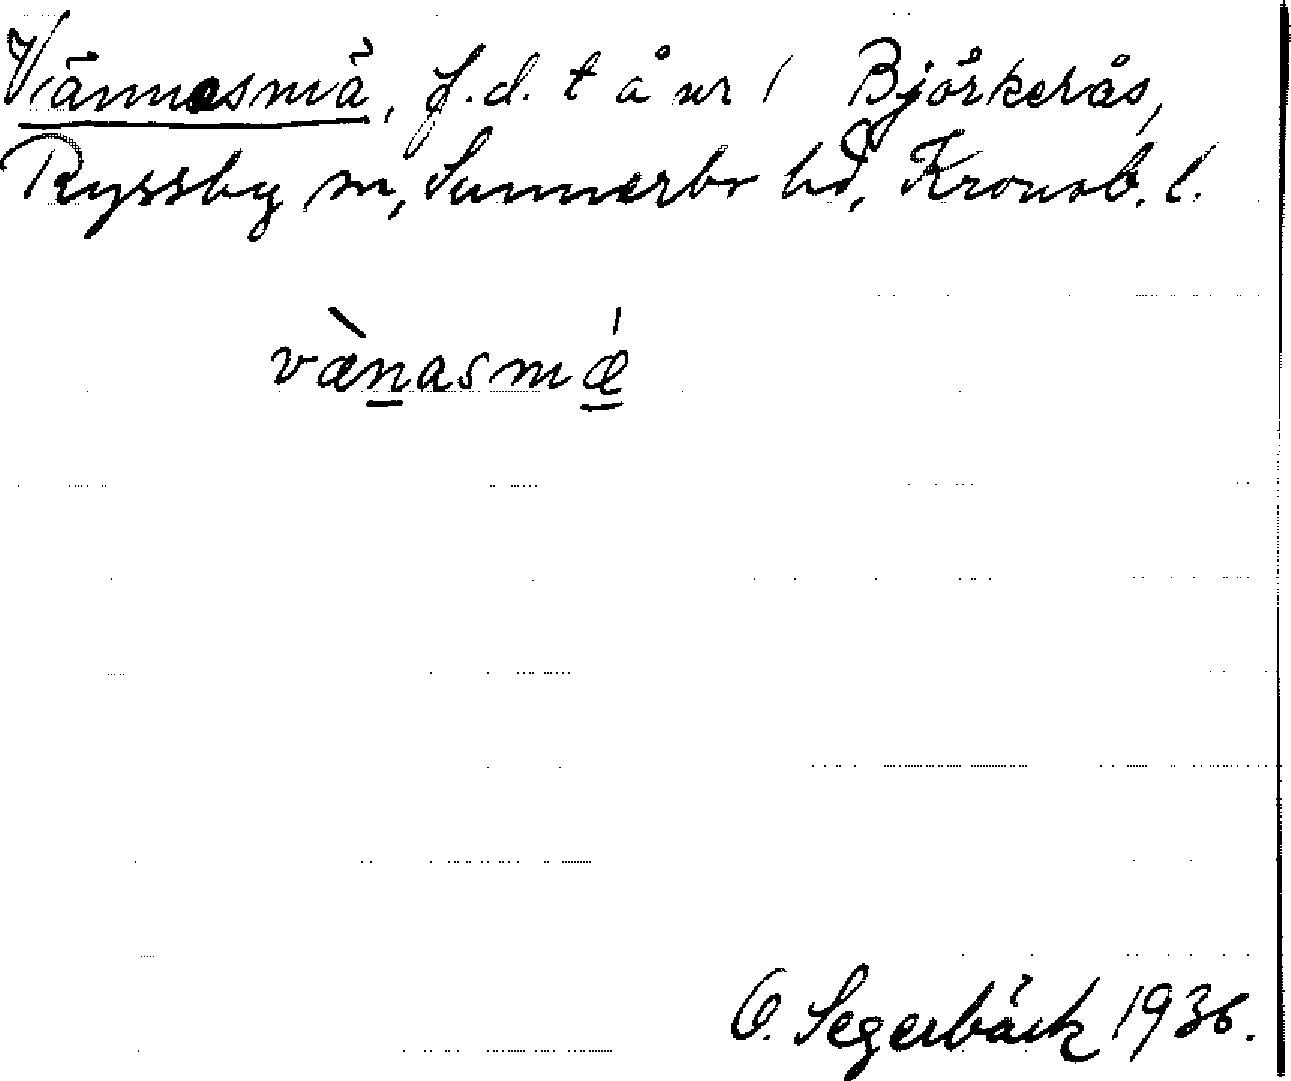 Vännesmä, f.d. t å nr 1 Björkerås,
Ryssby sn, Sunnerbo hd, Kronob. l.
væ̀nasmǽ
O. Segerbäck 1936.